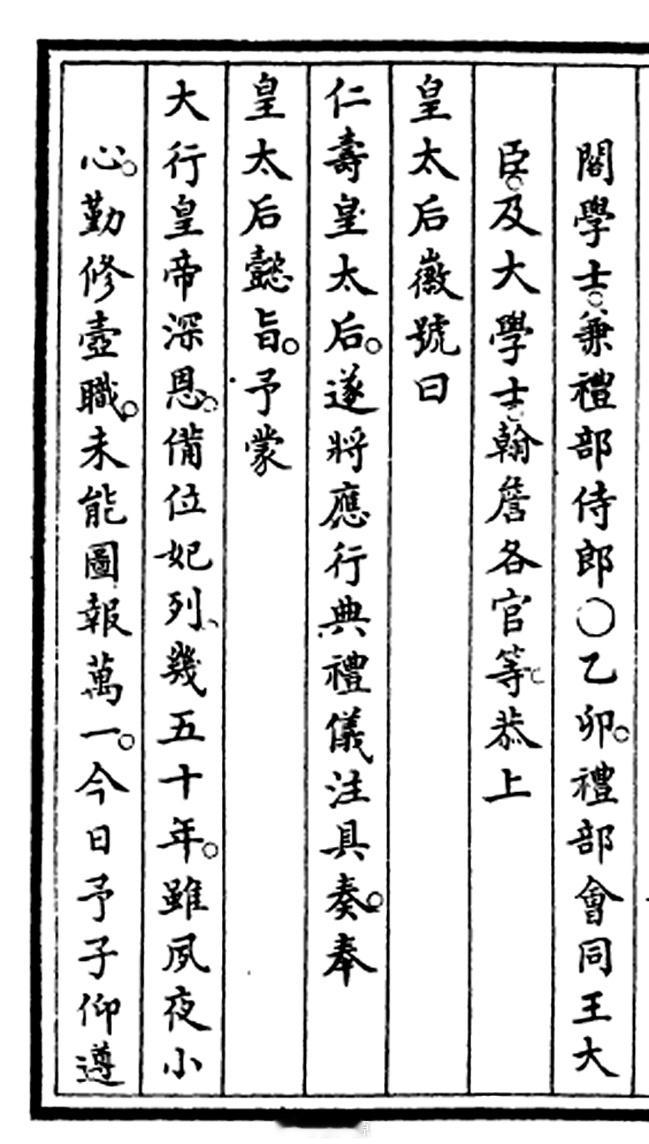 閣學士。兼禮部侍郎○乙卯。禮部會同王大
臣。及大學士。翰詹各官等。恭上
皇太后徽號曰
仁壽皇太后。遂將應行典禮儀注具奏。奉
皇太后懿旨。予蒙
大行皇帝深恩。備位妃列、幾五十年。雖夙夜小
心。勤修壼職。未能圖報萬一。今日予子仰遵